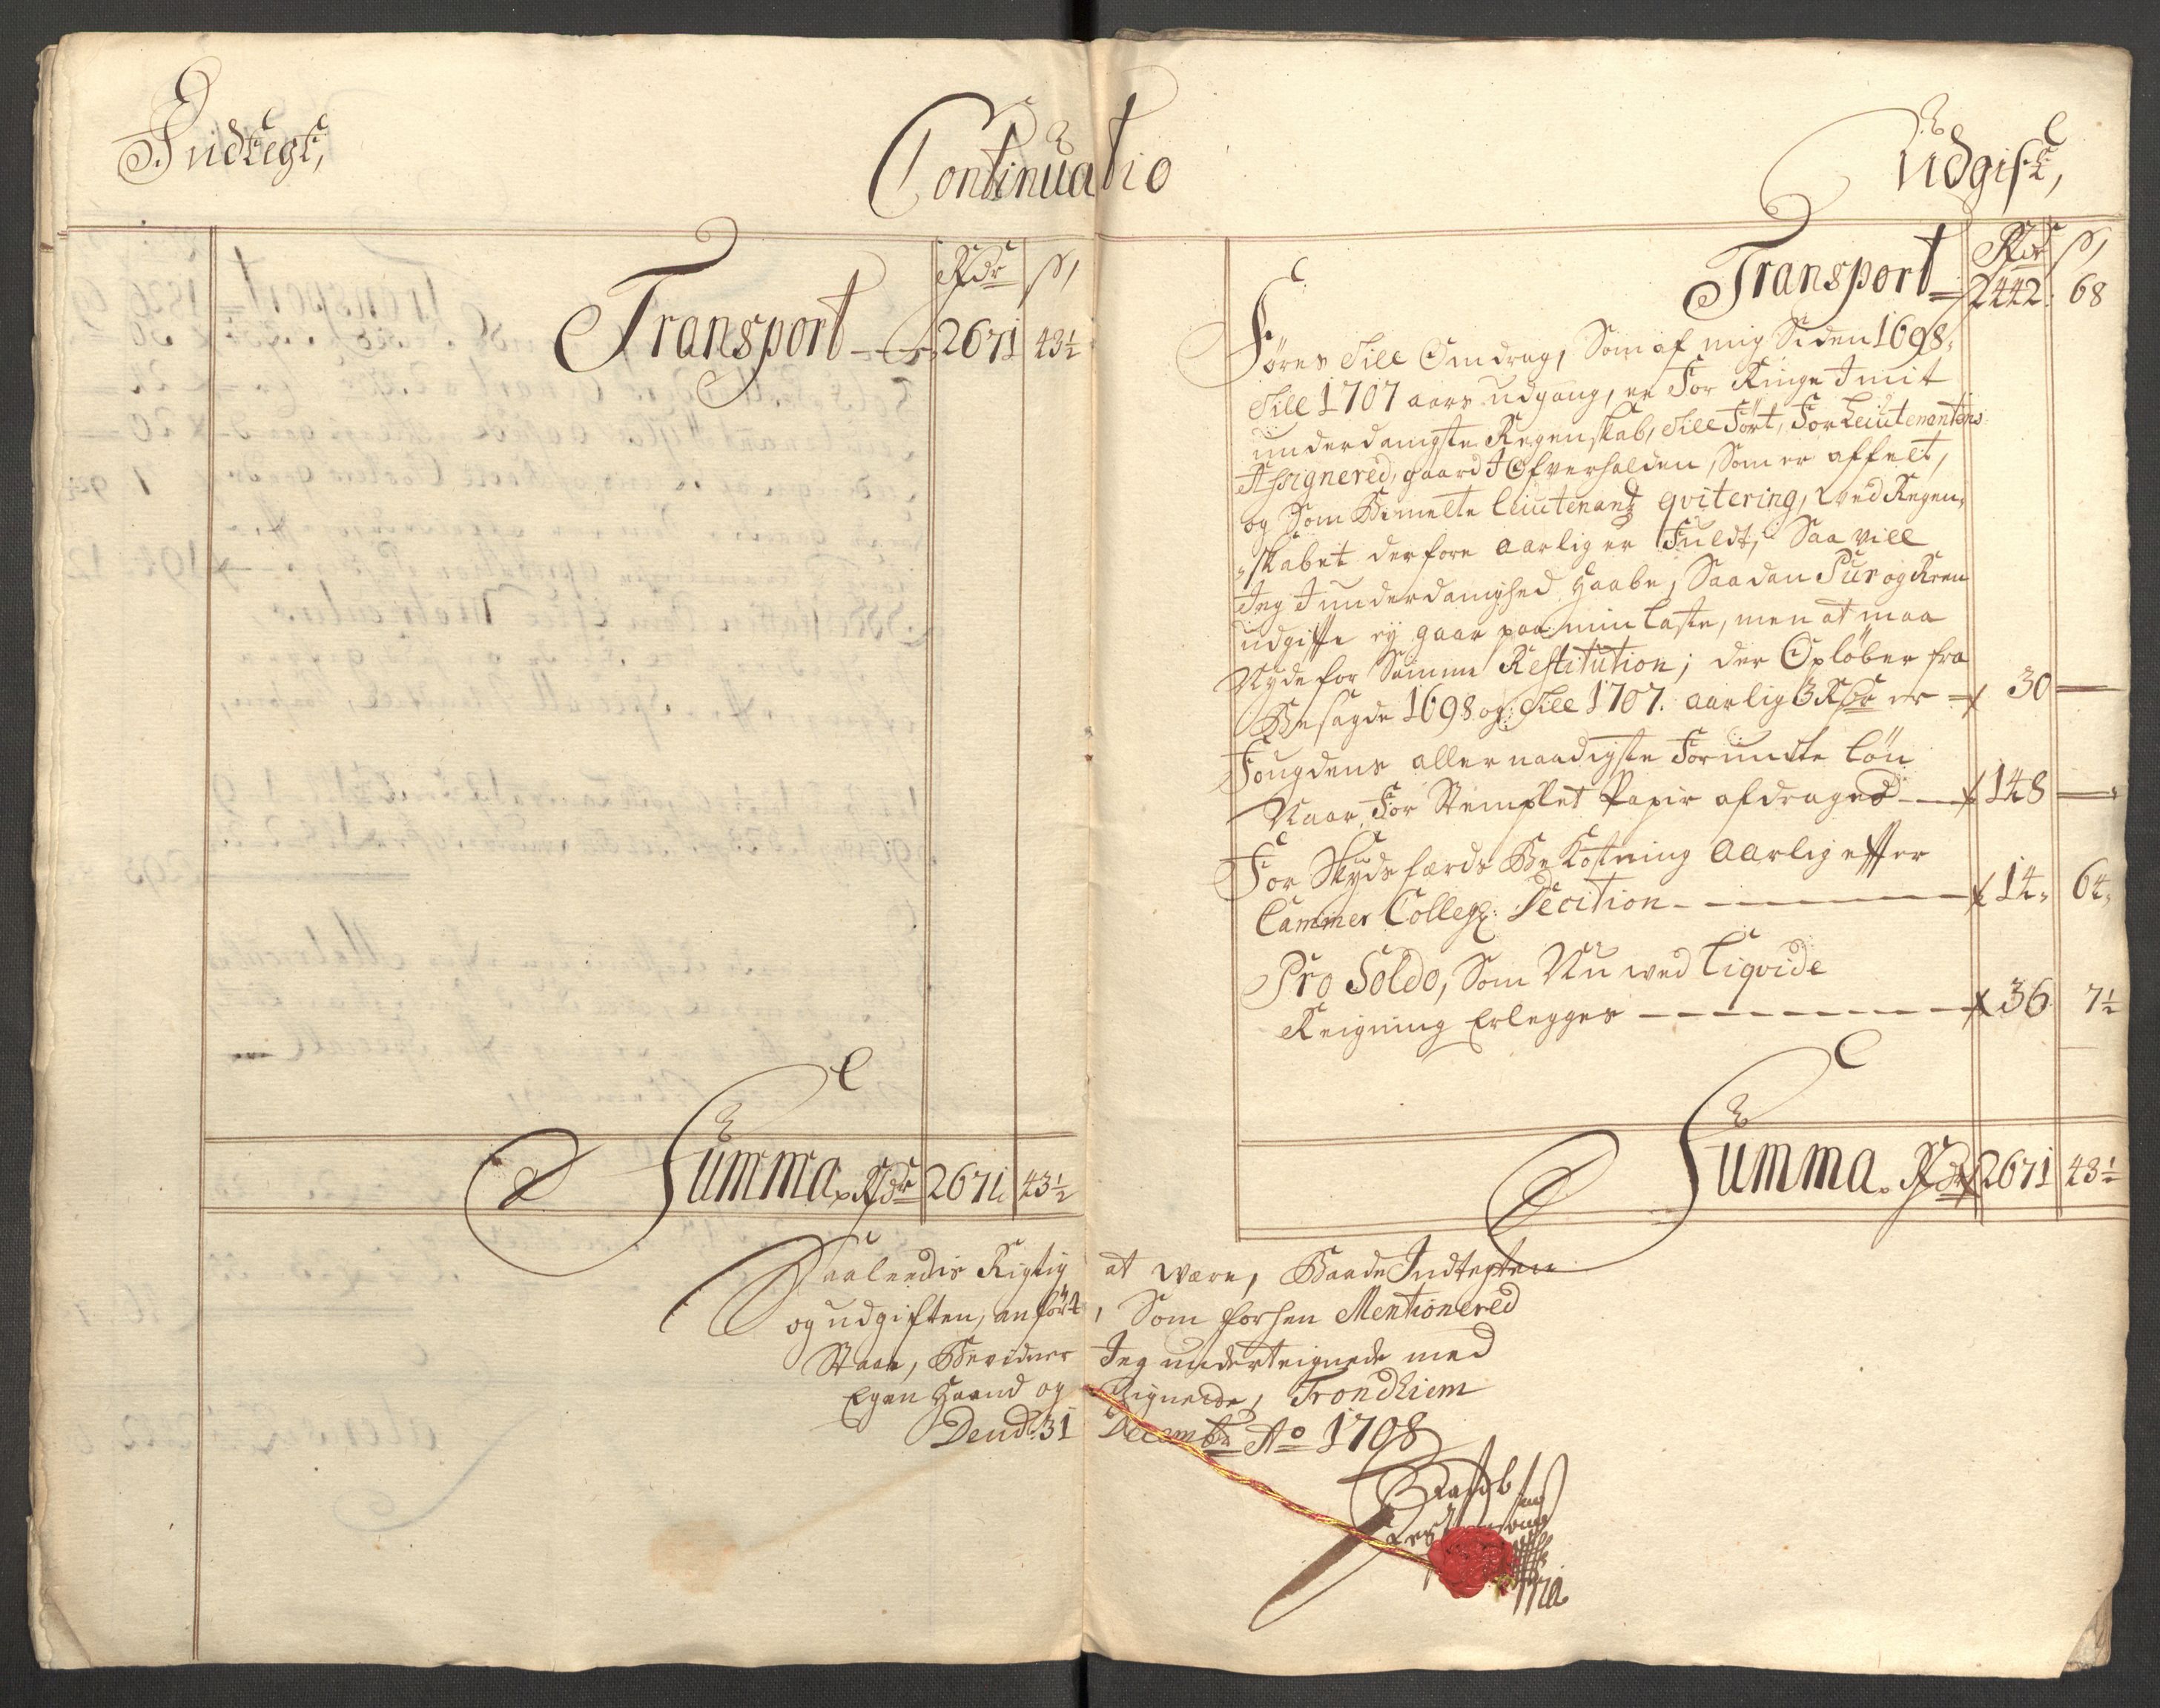 Indtegt,
Continuatio
Udgift,
Rdr ß
Transport 2671 43½
Summa Rdr 2671 43½
Rdr ß
Transport 2442 68
Föres till Omdrag, Som af mig Siden 1698
till 1707 aars udgang, er For Ringe I mit
underdanigste Regenskab, till Fört, For Leiutenantens
Assignered, gaard I Ofverhalden, Som er affelt,
og Som Bemelte Leiutenantz qvitering, ved Regen-
skabet derfore aarlig er Fuldt, Saa vill
Jeg I underdanighed haabe, Saadan Pur og Reen
udgifft ey gaar paa min Caste, men at maa
Nyde for Samme Restitution; der Opløber fra
Besagde 1698 og till 1707. aarlig 3 Rdr er 30 —
Fougdens aller naadigste Forundte Lön
Naar For Stemplet Papir afdraged 148 —
For Skydsfærds Bekostning aarlig effter
Cammer Colleg: Decition 14 64
Pro Soldo, Som Nu ved Liqvide
Reigning Erlegges 36 7½
Summa Rdr 2671 43½
Saaleedis Rigtig at være, Baade Indtegten
og udgiften, anført, Som forhen Mentionered
Staar, Bevidner Jeg underteignede med
Egen Haand og Zignete, Trondhiem
Dend 31 Decembr Ao 1708